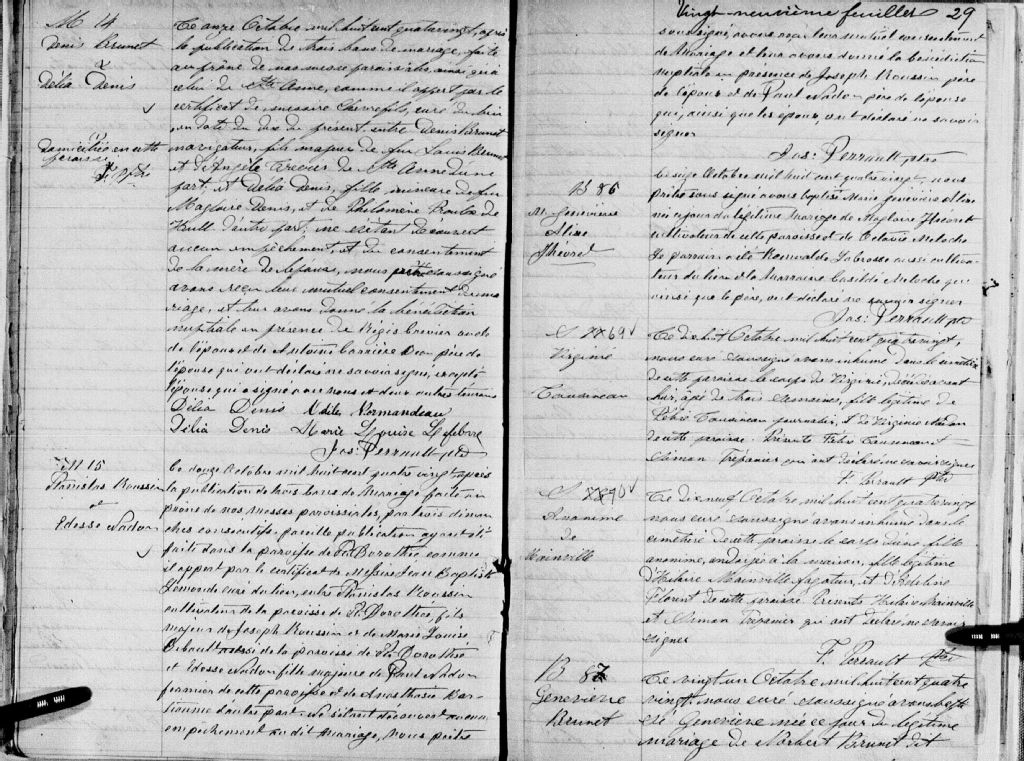 M 14
Denis Brunet
&
Délia Denis
Domiciliée en cette
paroisse
Le onze Octobre mil huit cent quatre vingt, après
la publication de trois bans de mariage, faite
au prône de nos messes paroissiales, ainsi qu'à
celui de Ste Anne, comme il appert par le
certificat de messire Chevrefils, curé du lieu
en date du dix du présent, entre Denis Brunet
navigateur, fils majeur de feu Louis Brunet
et d'Angèle de Ste Anne d'une
part, et Délia Denis, fille mineure de feu
Magloire Denis, et de Philomène de
Hull d'autre part; ne s'étant découvert
aucun empêchement, et du consentement
de la mère de l'épouse, nous prêtre soussigné
avons reçu leur mutuel consentement de ma
riage, et leur avons donné la bénédiction
nuptiale en présence de Régis oncle
de l'époux et de Antoine Carrière beau père de
l'épouse qui ont déclaré ne savoir signer, excepté
l'épouse qui a signé avec nous et deux autres témoins
Délia Denis Normandeau
Délia Denis Marie Louise Lefebvre
Jos: Perrault ptre
M 15
Stanislas Roussin
et
Edesse Nadon
Le douze Octobre mil huit cent quatre vingt, après
la publication de trois bans de Mariage faite au
prône de nos messes paroissiales, par trois diman
ches consécutifs, pareille publication ayant été
faite dans la paroisse de Ste Dorothée, comme
il appert par le certificat de Messire Jean Baptiste
Lemonde curé du lieu, entre Stanislas Roussin
cultivateur de la paroisse de Ste Dorothée, fils
majeur de Joseph Roussin et de Marie Louise
aussi de la paroisse de Ste Dorothée
et Edesse Nadon fille majeure de Paul Nadon
fermier de cette paroisse et de Anasthasie
d'autre part. Ne s'étant découvert aucun
empêchement au dit Mariage, Nous prêtre
Vingt-neuvième feuillet 29
soussigné, avons reçu leur mutuel consentement
de Mariage et leur avons donné la bénédiction
nuptiale en présence de Joseph Roussin père
de l'époux et de Paul Nadon père de l'épouse
qui, ainsi que les époux, ont déclaré ne savoir
signer
Jos: Perrault ptre
B 86
M. Geneviève
Aline
Théoret
Le seize Octobre mil huit cent quatre vingt, nous
prêtre sous signé avons baptisé Marie Geneviève Aline
née ce jour du légitime Mariage de Magloire Théoret
cultivateur de cette paroisse et de Octavie Meloche
Le parrain a été Romuald Labrosse aussi cultiva-
teur du lieu et la Marraine Casilde Meloche qui
ainsi que le père, ont déclaré ne savoir signer
Jos: Perrault ptre
S 69
Virginie
Tousineau
Le dix huit Octobre mil huit cent quatre vingt,
nous curé soussigné avons inhumé dans le cimetière
de cette paroisse le corps de Virginie, décédée avant
hier, âgée de trois semaines, fille légitime de
Félix Tousineau journalier, et de Virginie Nadon
de cette paroisse. Présents Félix Tousineau et
Simon Trépanier qui ont déclaré ne savoir signer
F. Perrault ptre
S 70
Anonime
de
Mainville
Le dix neuf Octobre mil huit cent quatre vingt
nous curé soussigné avons inhumé dans le
cimetière de cette paroisse le corps d'une fille
anonime, ondoyée à la maison, fille légitime
d'Hilaire Mainville, et d'Adeline
Florent de cette paroisse. Présents Hilaire Mainville
et Simon Trépanier qui ont déclaré ne savoir
signer
F. Perrault ptre
B 87
Geneviève
Brunet
Le vingt un Octobre mil huit cent quatre
vingt, nous curé soussigné avons bapti
sé Geneviève née ce jour du légitime
mariage de Norbert Brunet dit